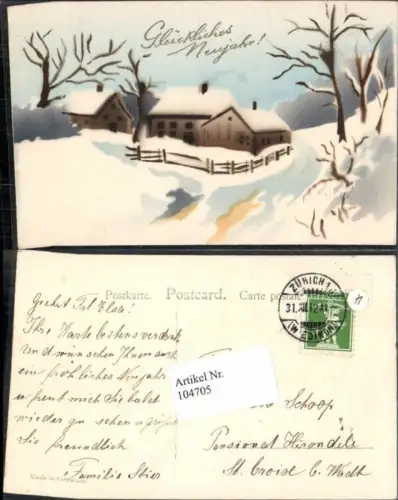 Glückliches
Neujahr!
Postkarte. Postcard. Carte postale
ZÜRICH 1
31.XII.12.XI
(W EDIKON)
Geehrt Frl Elsa!
Ihre Karte bestens verdankt
Und wünschen Ihnen auch
ein fröhliches Neujahr
u freut mich Sie bald
wieder zu sehen u grüsst
Sie freundlich
Familie Stier
Made in Germany
Artikel Nr.
104705
Schoop
Pensionat Hirondels
St. Croise b. Wadt